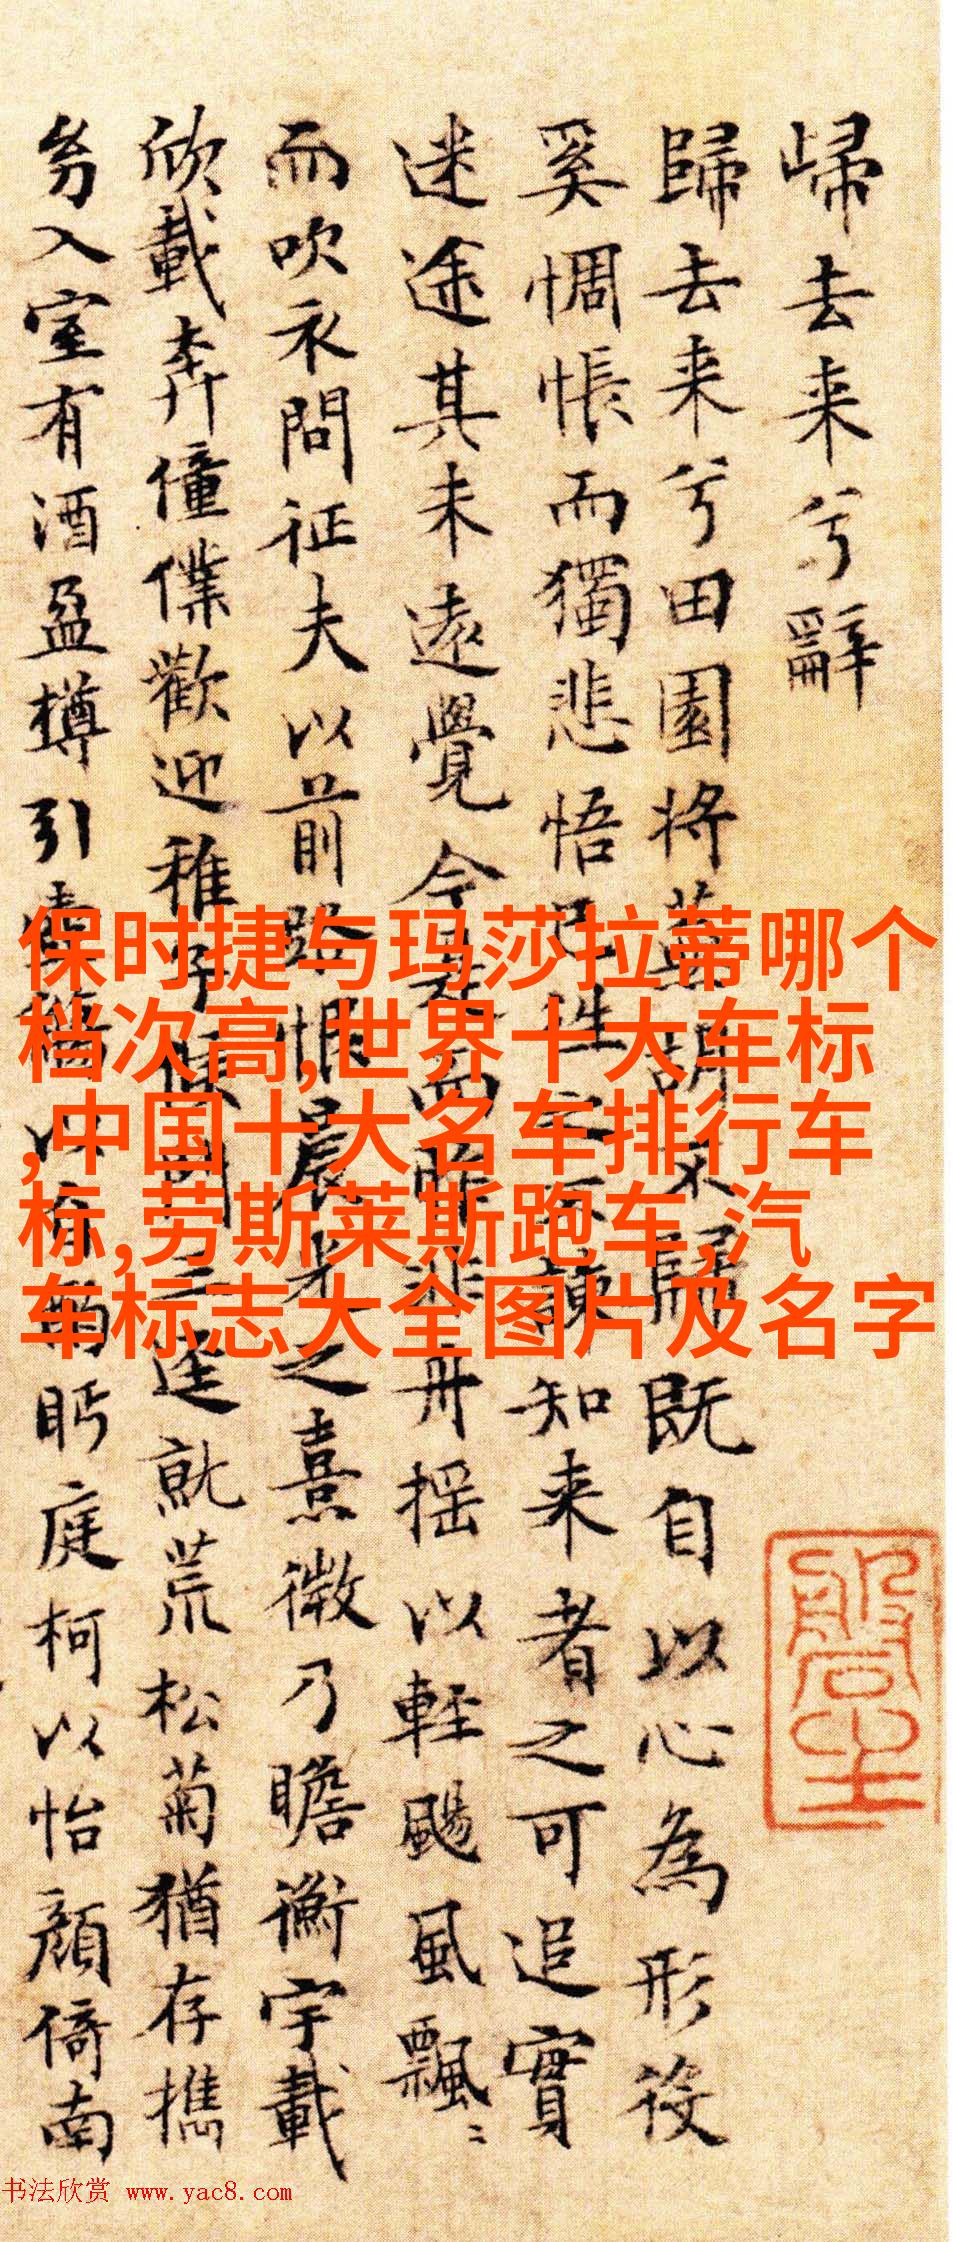 歸去来兮辭
歸去来兮田園将蕪胡不歸既自以心為形役
奚惆悵而獨悲悟已往之不諫知来者之可追實
迷途其未遠覺今是而昨非舟揺以輕颺風飄〻
而吹衣問征夫以前路恨晨光之熹微乃瞻衡宇載
欣載奔僮僕歡迎稚子候門三逕就荒松菊猶存携
幼入室有酒盈樽引壺觴以自酌眄庭柯以怡顔倚南
保时捷与玛莎拉蒂哪个
档次高,世界十大车标
,中国十大名车排行车
标,劳斯莱斯跑车,汽
车标志大全图片及名字
书法欣赏 www.yac8.com